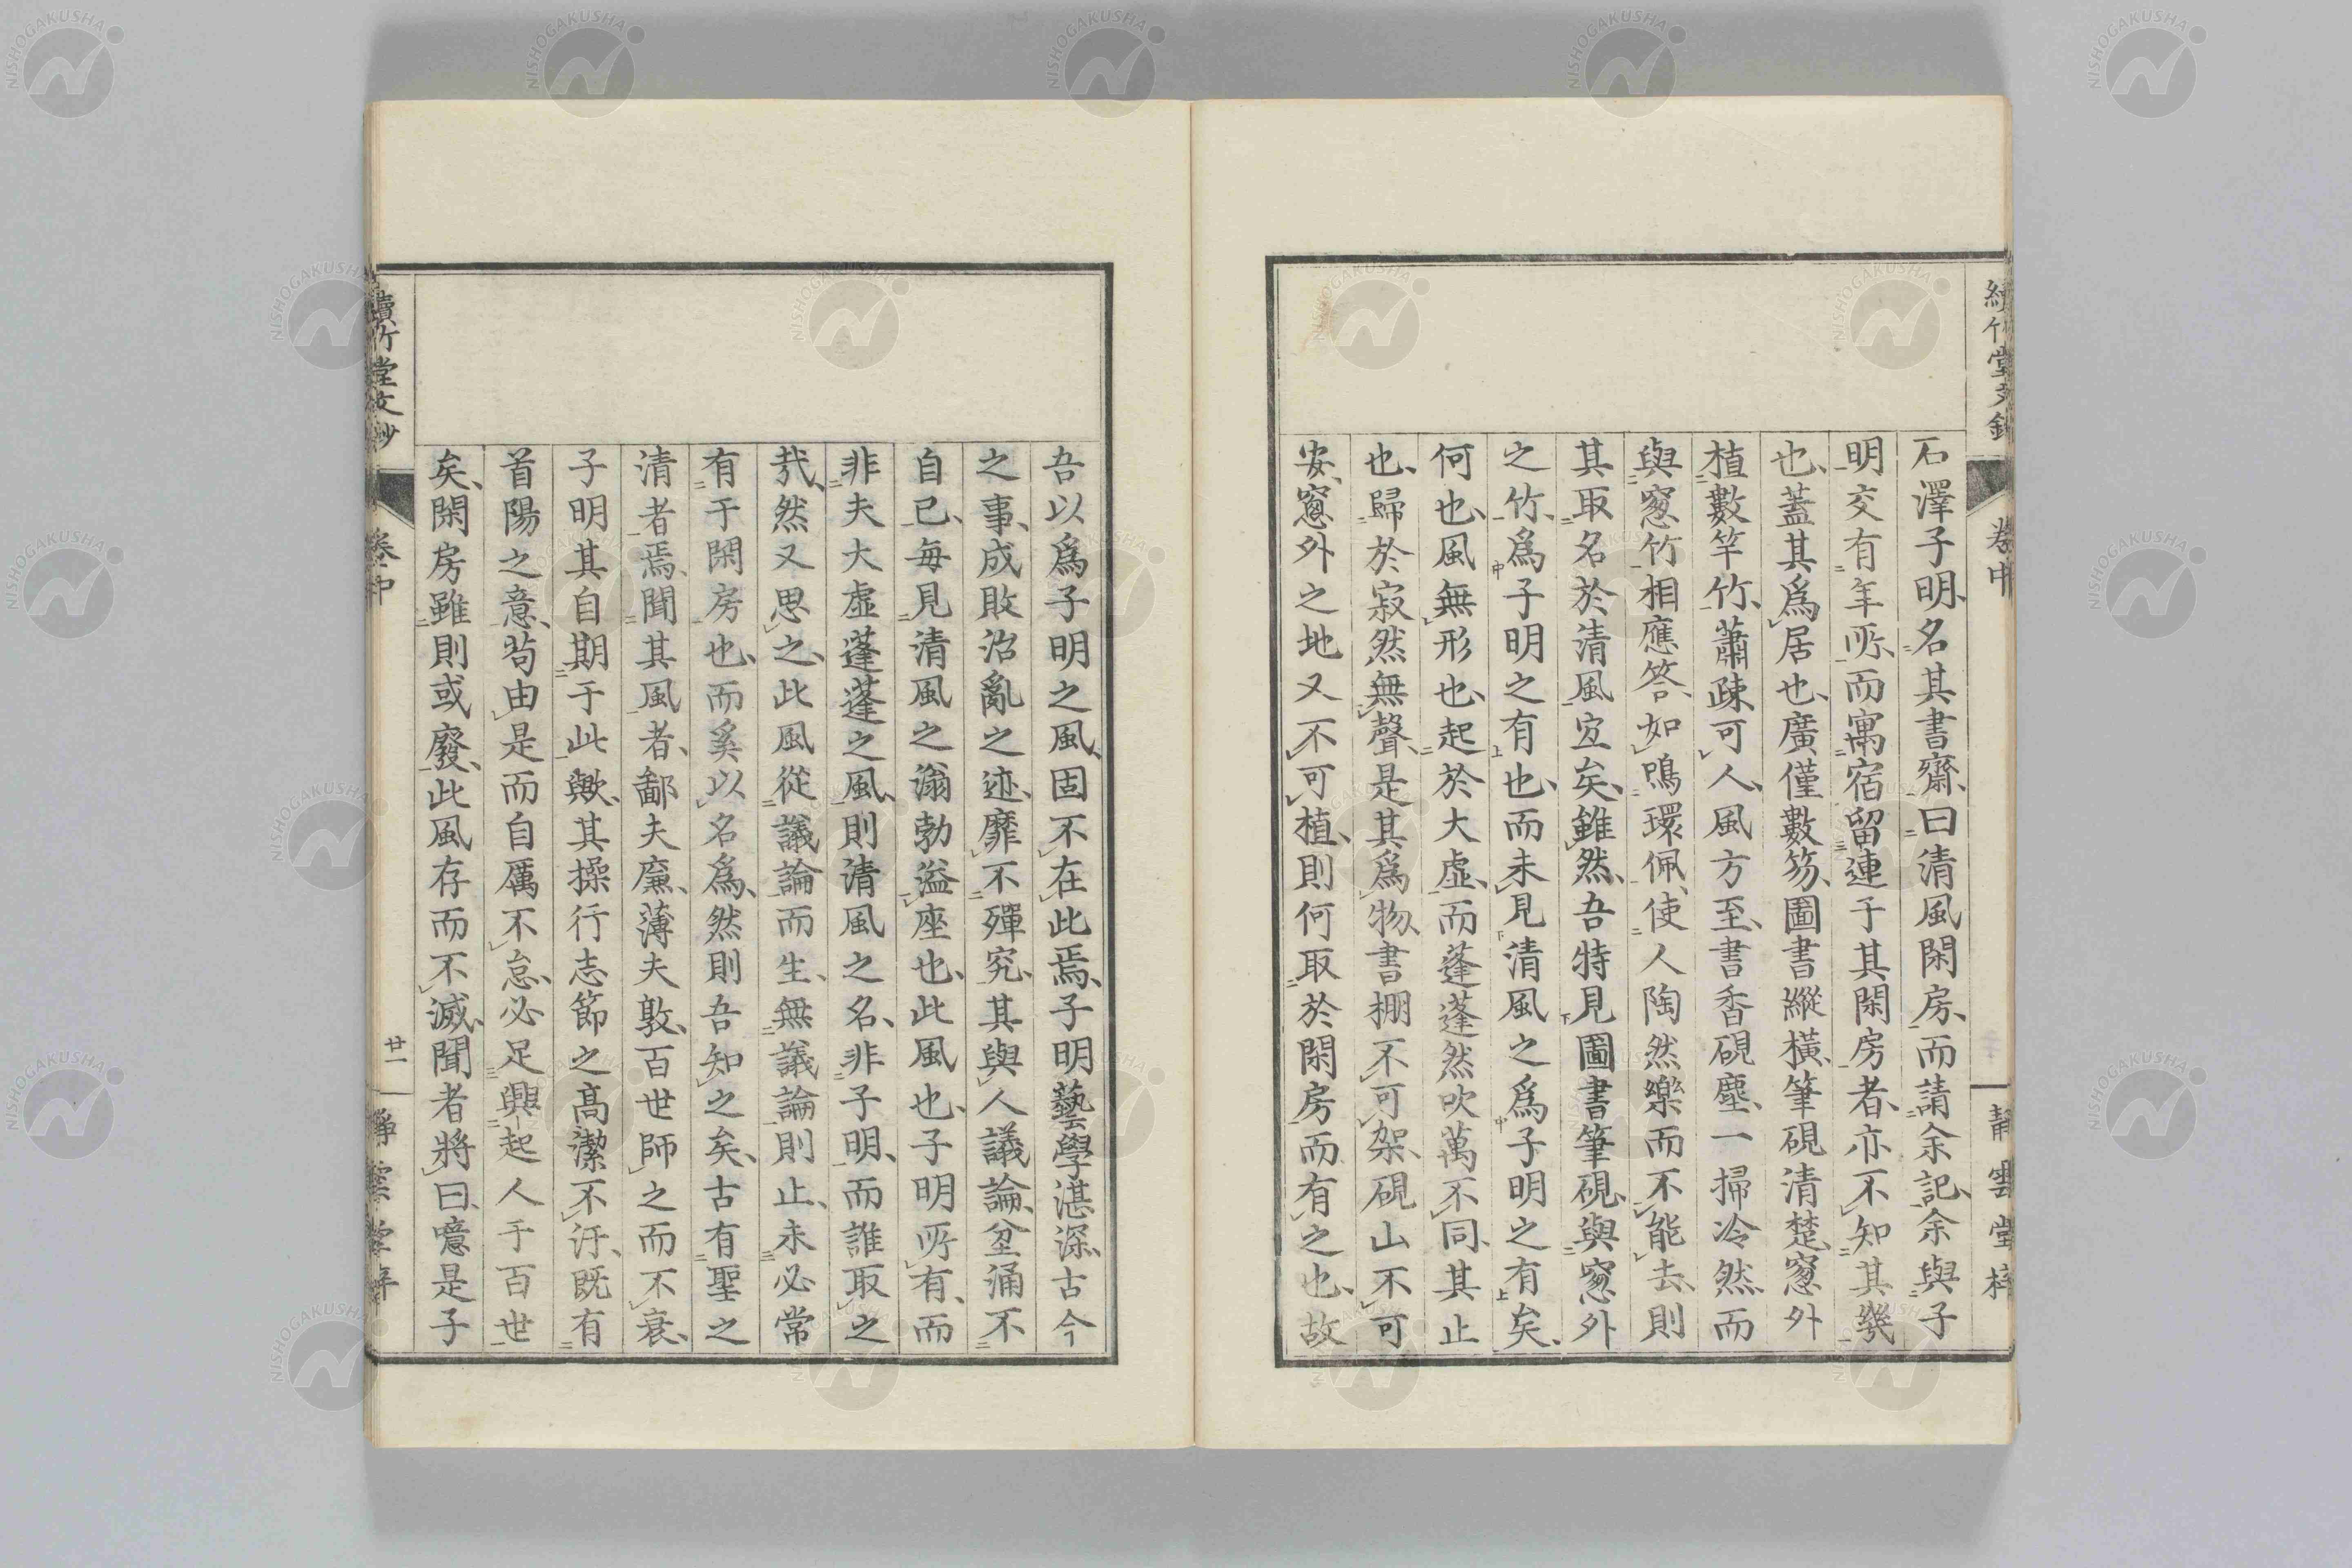 續竹堂文鈔
卷中
靜雲堂梓
石澤子明、名其書齋、曰清風閑房、而請余記、余與子
明交有年所、而寓宿留連于其閑房者、亦不知其幾
也、蓋其爲居也、廣僅數笏、圖書縱橫、筆硯清楚、窻外
植數竿竹、蕭疎可人、風方至、書香硯塵、一掃冷然、而
與窻竹相應答、如鳴環佩、使人陶然樂而不能去、則
其取名於清風宜矣、雖然、吾特見圖書筆硯、與窻外
之竹、爲子明之有也、而未見清風之爲子明之有矣、
何也、風無形也、起於大虛、而蓬蓬然吹萬不同、其止
也、歸於寂然無聲、是其爲物、書棚不可架、硯山不可
安、窻外之地又不可植、則何取於閑房而有之也、故
吾以爲子明之風、固不在此焉、子明藝學湛深、古今
之事、成敗治亂之迹、靡不殫究、其與人議論、坌涌不
自已、每見清風之滃勃溢座也、此風也、子明所有、而
非夫大虛蓬蓬之風、則清風之名、非子明、而誰取之
哉、然又思之、此風從議論而生、無議論則止、未必常
有于閑房也、而奚以名爲、然則吾知之矣、古有聖之
清者焉、聞其風者、鄙夫廉、薄夫敦、百世師之而不衰、
子明其自期于此歟、其操行志節之高潔不汙、既有
首陽之意、苟由是而自厲不怠、必足興起人于百世
矣、閑房雖則或廢、此風存而不滅、聞者將曰、噫是子
續竹堂文鈔
卷中
廿一
靜雲堂梓